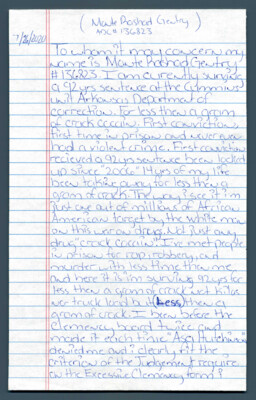 (Monte Rashad Gentry)
ADC# 136823
7/26/2020
To whom it may concern my
name is Monte Rashad Gentry
#136823. I am currently surviving
a 92 yrs sentence at the Cummins
unit Arkansas Department of
correction. For less then a gram
of crack cocain. First conviction
first time in prison and never even
had a violent charge. First conviction
recieved a 92 yrs sentence been locked
up since "2006" 14 yrs of my life
been taken away for less than a
gram of crack. The way I see it I'm
just one out of millions of African
American target by the white man
on this war on drug. Not just any
drug "crack cocain". I've met people
in prison for rap, robbery, and
murder with less time then me
and here it is I'm surviving 92 yrs for
less then a gram of crack not kilos
wer truck load but (Less) then a
gram of crack. I been before the
Clemency board twice and
made it each time "Asa Hutchinson"
denied me and I clearly fit the
criterion of the Judgement require
on the Excessive Clemency form?